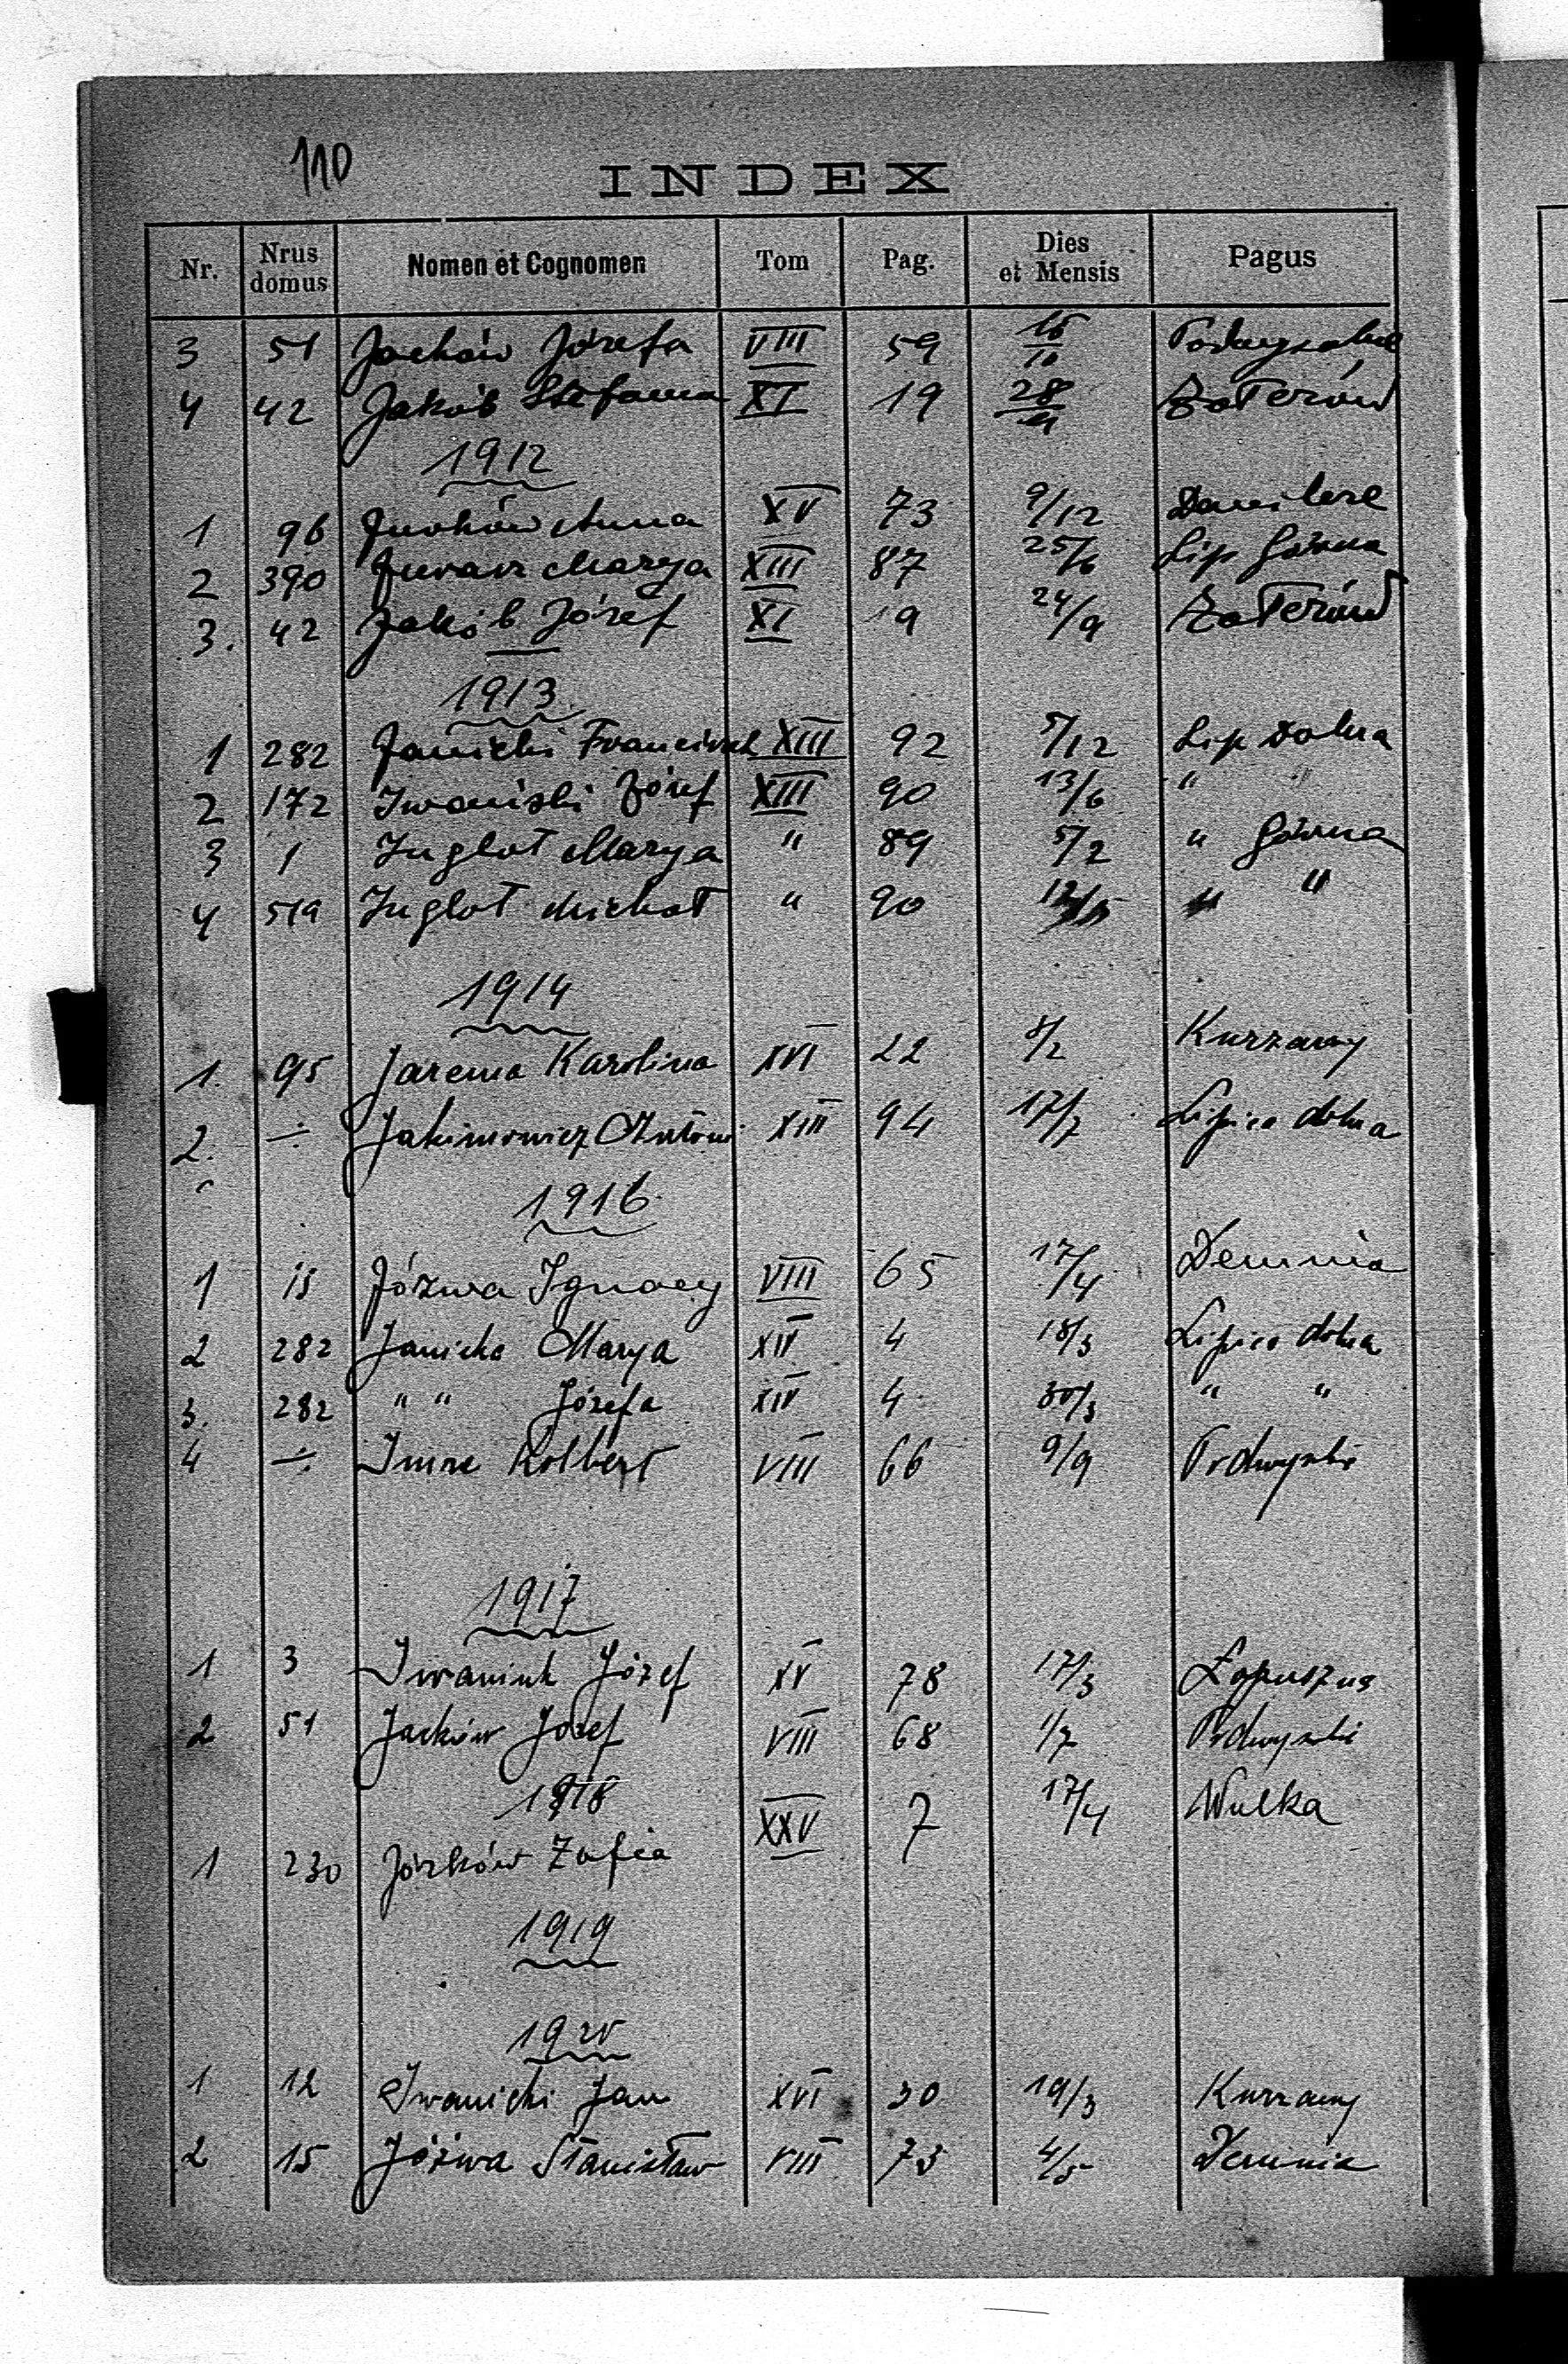 110
INDEX
Nr. Nrus domus Nomen et Cognomen Tom Pag. Dies et Mensis Pagus
3 51 Jacków Józefa VIII 59 15/10
4 42 Jakób Stefania XI 19 28/9 Załerów
1912
1 96 Anna XV 73 9/12
2 390 Marya XIII 87 25/6 Lip Górna
3. 42 Jakób Józef XI 19 24/9 Załerów
1913
1 282 Janicki Franciszek XIII 92 5/12 Lip Dolna
2 172 Iwaniski Józef XIII 90 13/6 " "
3 1 Inglot Marya " 89 5/2 " Górna
4 519 Inglot Michał " 90 12/5 " "
1914
1. 95 Jarema Karolina XVI 22 8/2 Kurzany
2. ÷ Jakimowicz Antoni XIII 94 17/7 Lipica dolna
1916
1 15 Józwa Ignacy VIII 65 17/4 Demnia
2 282 Janicka Marya XIV 4 18/3 Lipica dolna
3. 282 " " Józefa XIV 4 30/3 " "
4 ÷ Imre Kolbert VIII 66 9/9 Podwyskie
1917
1 3 Iwaniuk Józef XV 78 17/3 Łopuszna
2 51 Jacków Józef VIII 68 1/7 Podwyskie
1918
1 230 Józków Zofia XXV 7 17/4 Wulka
1919
1920
1 12 Iwanicki Jan XVI 30 19/3 Kurzany
2 15 Józwa Stanisław VIII 73 4/5 Demnia